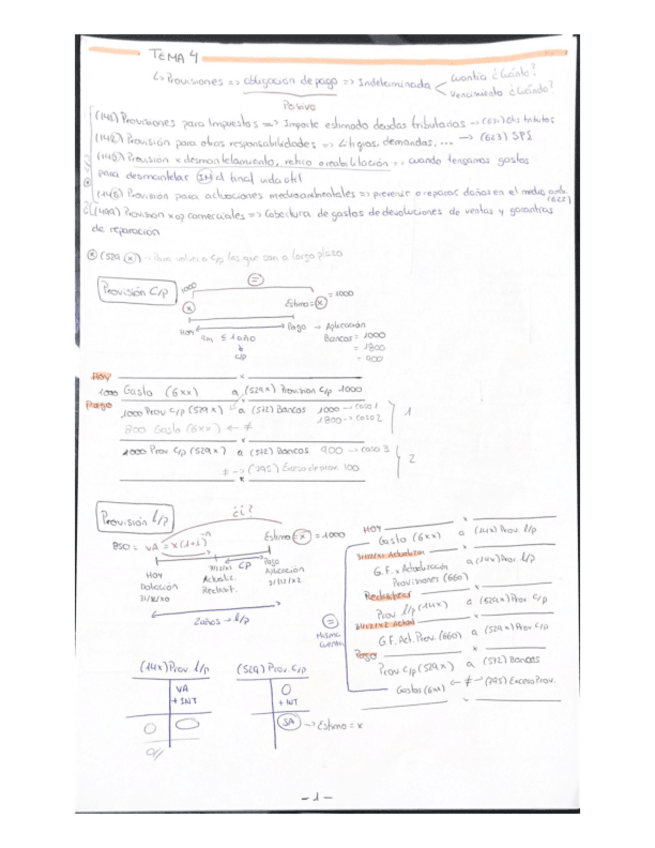 TEMA 4
↳ Provisiones => obligación de pago => Indeterminada < Cuantía ¿Cuánto?
Vencimiento ¿Cuándo?
Pasivo
(141) Provisiones para Impuestos => Importe estimado deudas tributarias → (631) Otros tributos
(142) Provisión para otras responsabilidades => Litigios, demandas, ... → (623) SPI
(143) Provisión x desmantelamiento, retiro o rehabilitación => cuando tengamos gastos
para desmantelar IM al final vida útil
(145) Provisión para actuaciones medioambientales => prevenir o reparar daños en el medio amb.
(622)
(499) Provisión x op comerciales => Cobertura de gastos de devoluciones de ventas y garantías
de reparación
(529x) → Para volver a c/p las que son a largo plazo
Provisión C/p
1000 =
x Estimo = x = 1000
Hoy ≤ 1 año Pago → Aplicación
c/p Bancos = 1000
= 1800
= 900
Hoy
1000 Gasto (6xx) a (529x) Provisión c/p 1000
Pago
1000 Prov c/p (529x) a (572) Bancos 1000 → caso 1
1800 → caso 2
800 Gasto (6xx) ← ≠
1
1000 Prov c/p (529x) a (572) Bancos 900 → caso 3
≠ → (795) Exceso de prov. 100
2
Provisión l/p
¿i?
850 = VA = x(1+i)^-n Estimo = x = 1000
Hoy
Dotación
31/12/x0
31/12/x1
Actualiz.
Reclasif.
CP
Pago
Aplicación
31/12/x2
2 años → l/p
Hoy
Gasto (6xx) a (14x) Prov l/p
31/12/x1 Actualizar
G.F. x Actualización a (14x) Prov. l/p
Provisiones (660)
Reclasificar
Prov l/p (14x) a (529x) Prov c/p
31/12/x2 Actual
G.F. Act. Prov. (660) a (529x) Prov c/p
Pago
Prov c/p (529x) a (572) Bancos
Gastos (6xx) ← ≠ → (795) Exceso Prov.
=
Misma
cuenta
(14x) Prov. l/p (529) Prov. c/p
VA 0
+ INT + INT
0 SA → Estimo = x
- 1 -